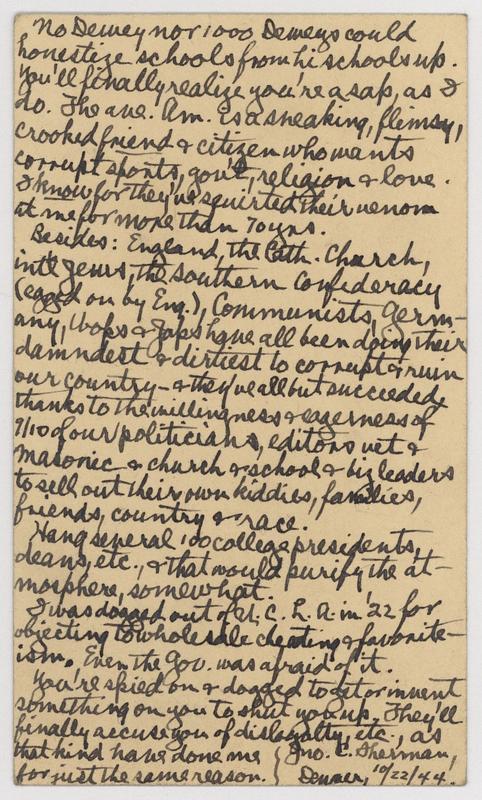 No Dewey nor 1000 Deweys could
honestize schools from hi schools up.
You'll finally realize you're a sap, as I
do. The ave. Am. is a sneaking, flimsy,
crooked friend & citizen who wants
corrupt sports, gov't, religion & love.
I know for they've squirted their venom
at me for more than 70 yrs.
Besides: England, the Cath. Church,
int'l Jews, the Southern Confederacy
(egged on by Eng.), Communists, Germ-
any, Wops & Japs have all been doing their
damndest & dirtiest to corrupt & ruin
our country - & they've all but succeeded,
thanks to the willingness & eagerness of
9/10 of our politicians, editors, vet &
masonic & church & school & biz leaders
to sell out their own kiddies, families,
friends, country & race.
Hang several 100 college presidents,
deans, etc., & that would purify the at-
mosphere, somewhat.
I was dogged out of U. C. L. A. in '22 for
objecting to wholesale cheating & favorite-
ism. Even the Gov. was afraid of it.
You're spied on & dogged to get or invent
something on you to shut you up. They'll
finally accuse you of disloyalty, etc., as
that kind have done me
for just the same reason.
Jno. C. Sherman,
Denver, 10/22/44.